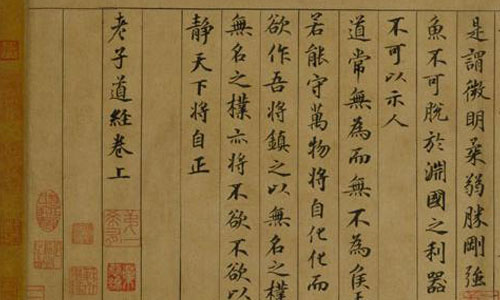 是謂微明柔弱勝剛強
魚不可脫於淵國之利器
不可以示人
道常無為而無不為侯
若能守萬物將自化化而
欲作吾將鎮之以無名之
無名之樸亦將不欲不欲以
靜天下將自正
老子道經卷上